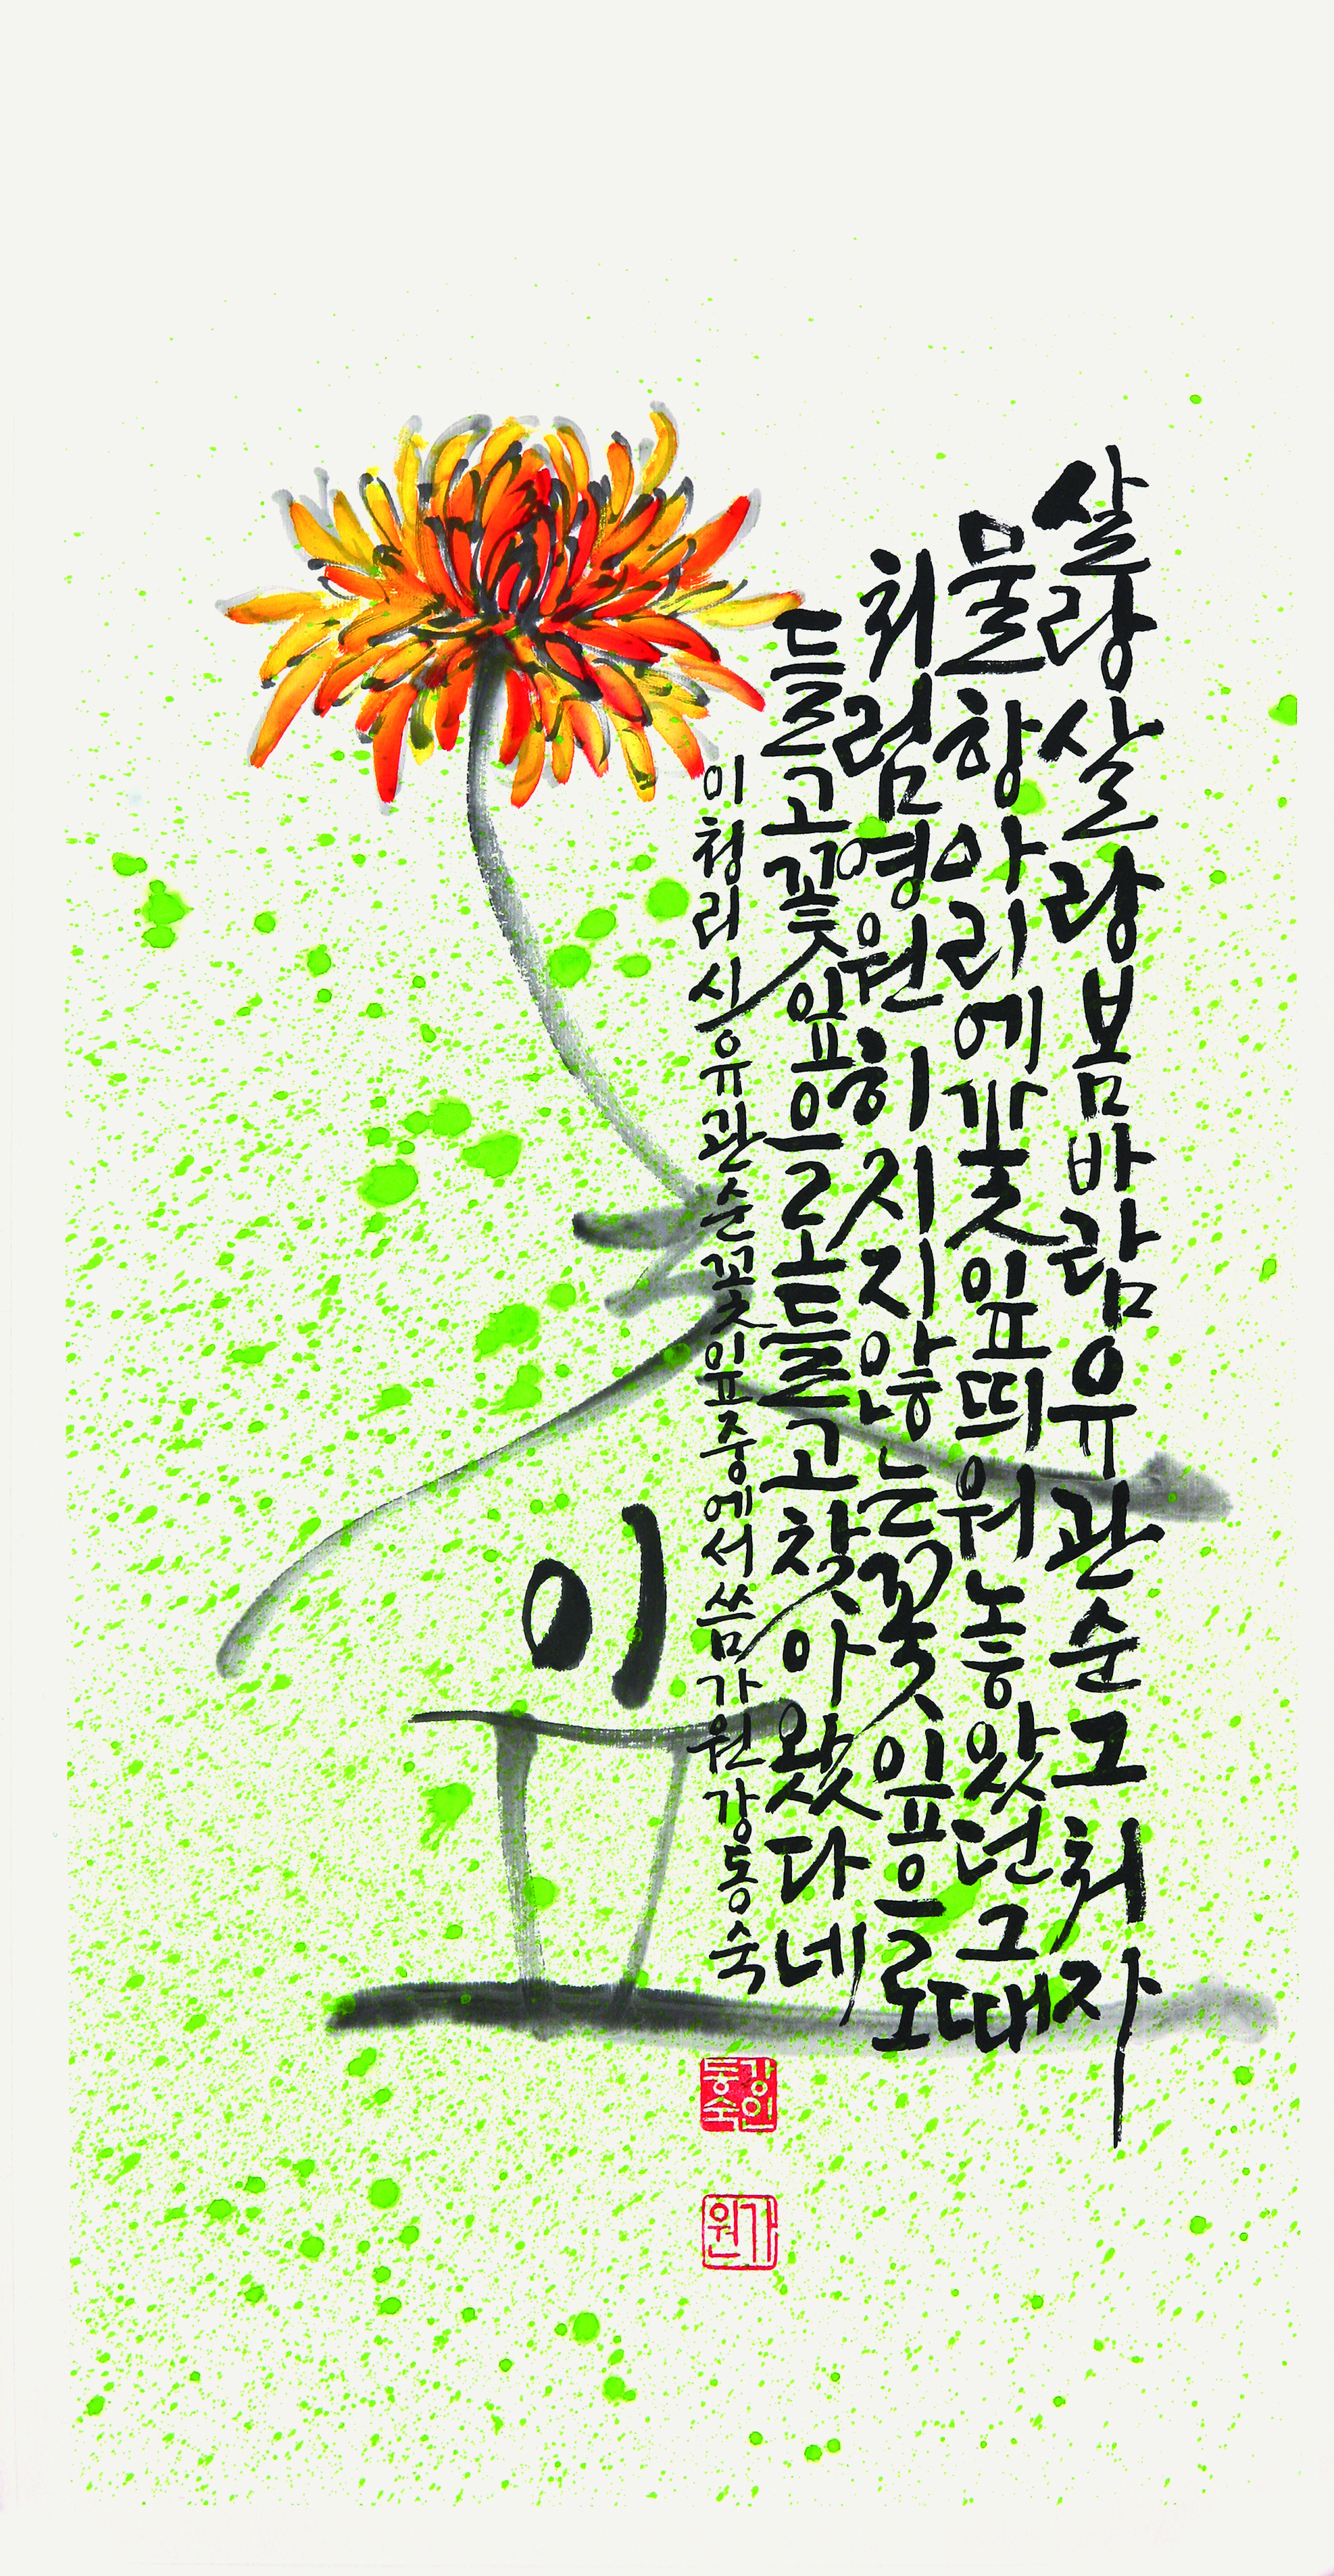 살랑살랑봄바람유관순그처자
물항아리에꽃잎띄워놓았던그때
처럼영원히지지않는꽃잎으로
들고꽃잎으로들고찾아왔다네
이청리시유관순꽃잎중에서씀가원강동숙
강인동숙
가원
꽃
잎